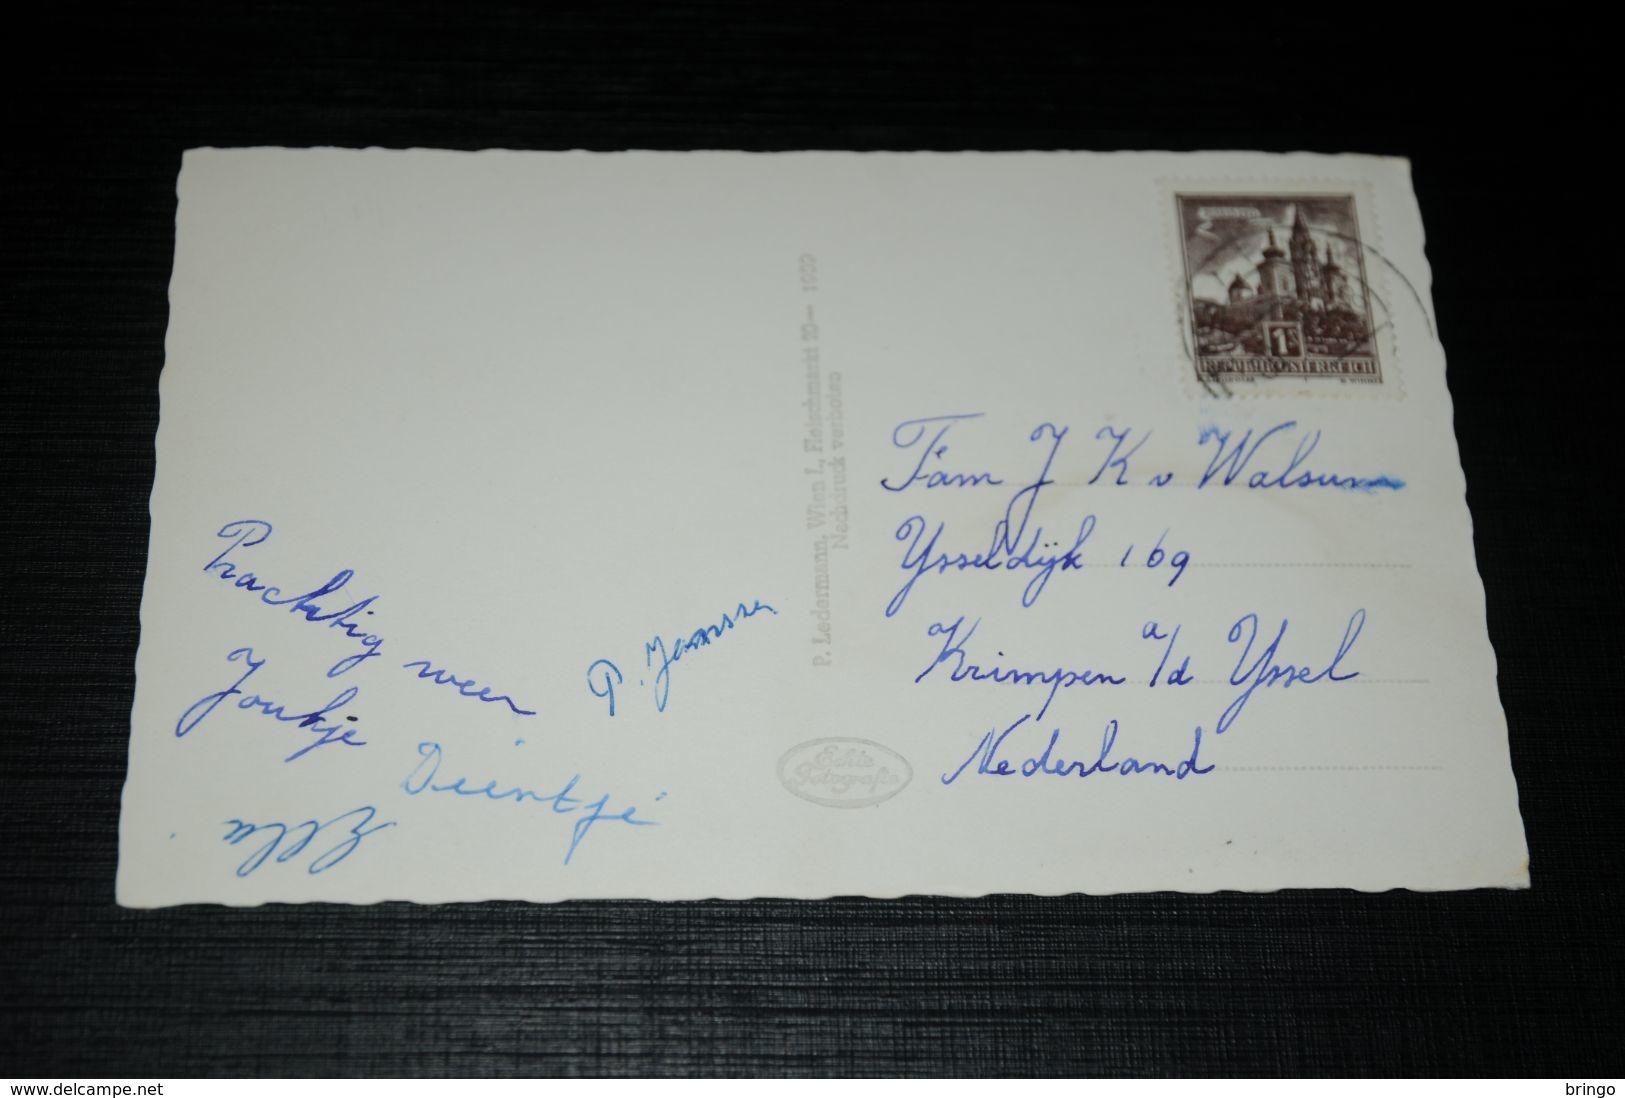 Prachtig weer
Joukje
P. Janssen
Dientje
Ella
P. Ledermann, Wien I., Fleischmarkt 20— 1939
Nachdruck verboten
Echte
Fotografie
1S
REPUBLIK ÖSTERREICH
Fam J K v Walsum
Ysseldijk 169
Krimpen a/d Yssel
Nederland
www.delcampe.net
bringo